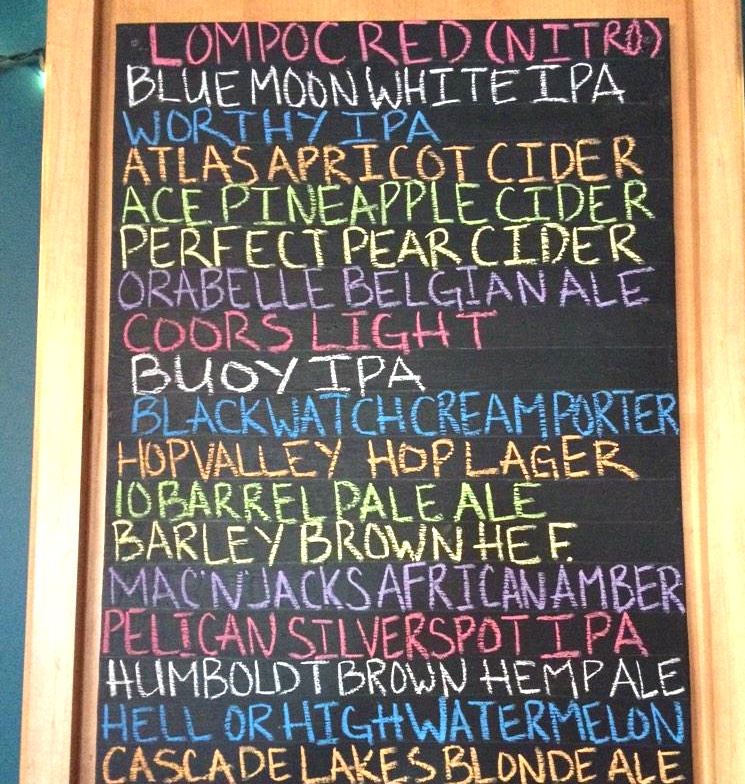 LOMPOC RED (NITRO)
BLUE MOON WHITE IPA
WORTHY IPA
ATLAS APRICOT CIDER
ACE PINEAPPLE CIDER
PERFECT PEAR CIDER
ORABELLE BELGIAN ALE
COORS LIGHT
BUOY IPA
BLACKWATCH CREAM PORTER
HOPVALLEY HOP LAGER
10 BARREL PALE ALE
BARLEY BROWN HEF.
MAC'N'JACKS AFRICAN AMBER
PELICAN SILVERSPOT IPA
HUMBOLDT BROWN HEMP ALE
HELL OR HIGH WATERMELON
CASCADE LAKES BLONDE ALE